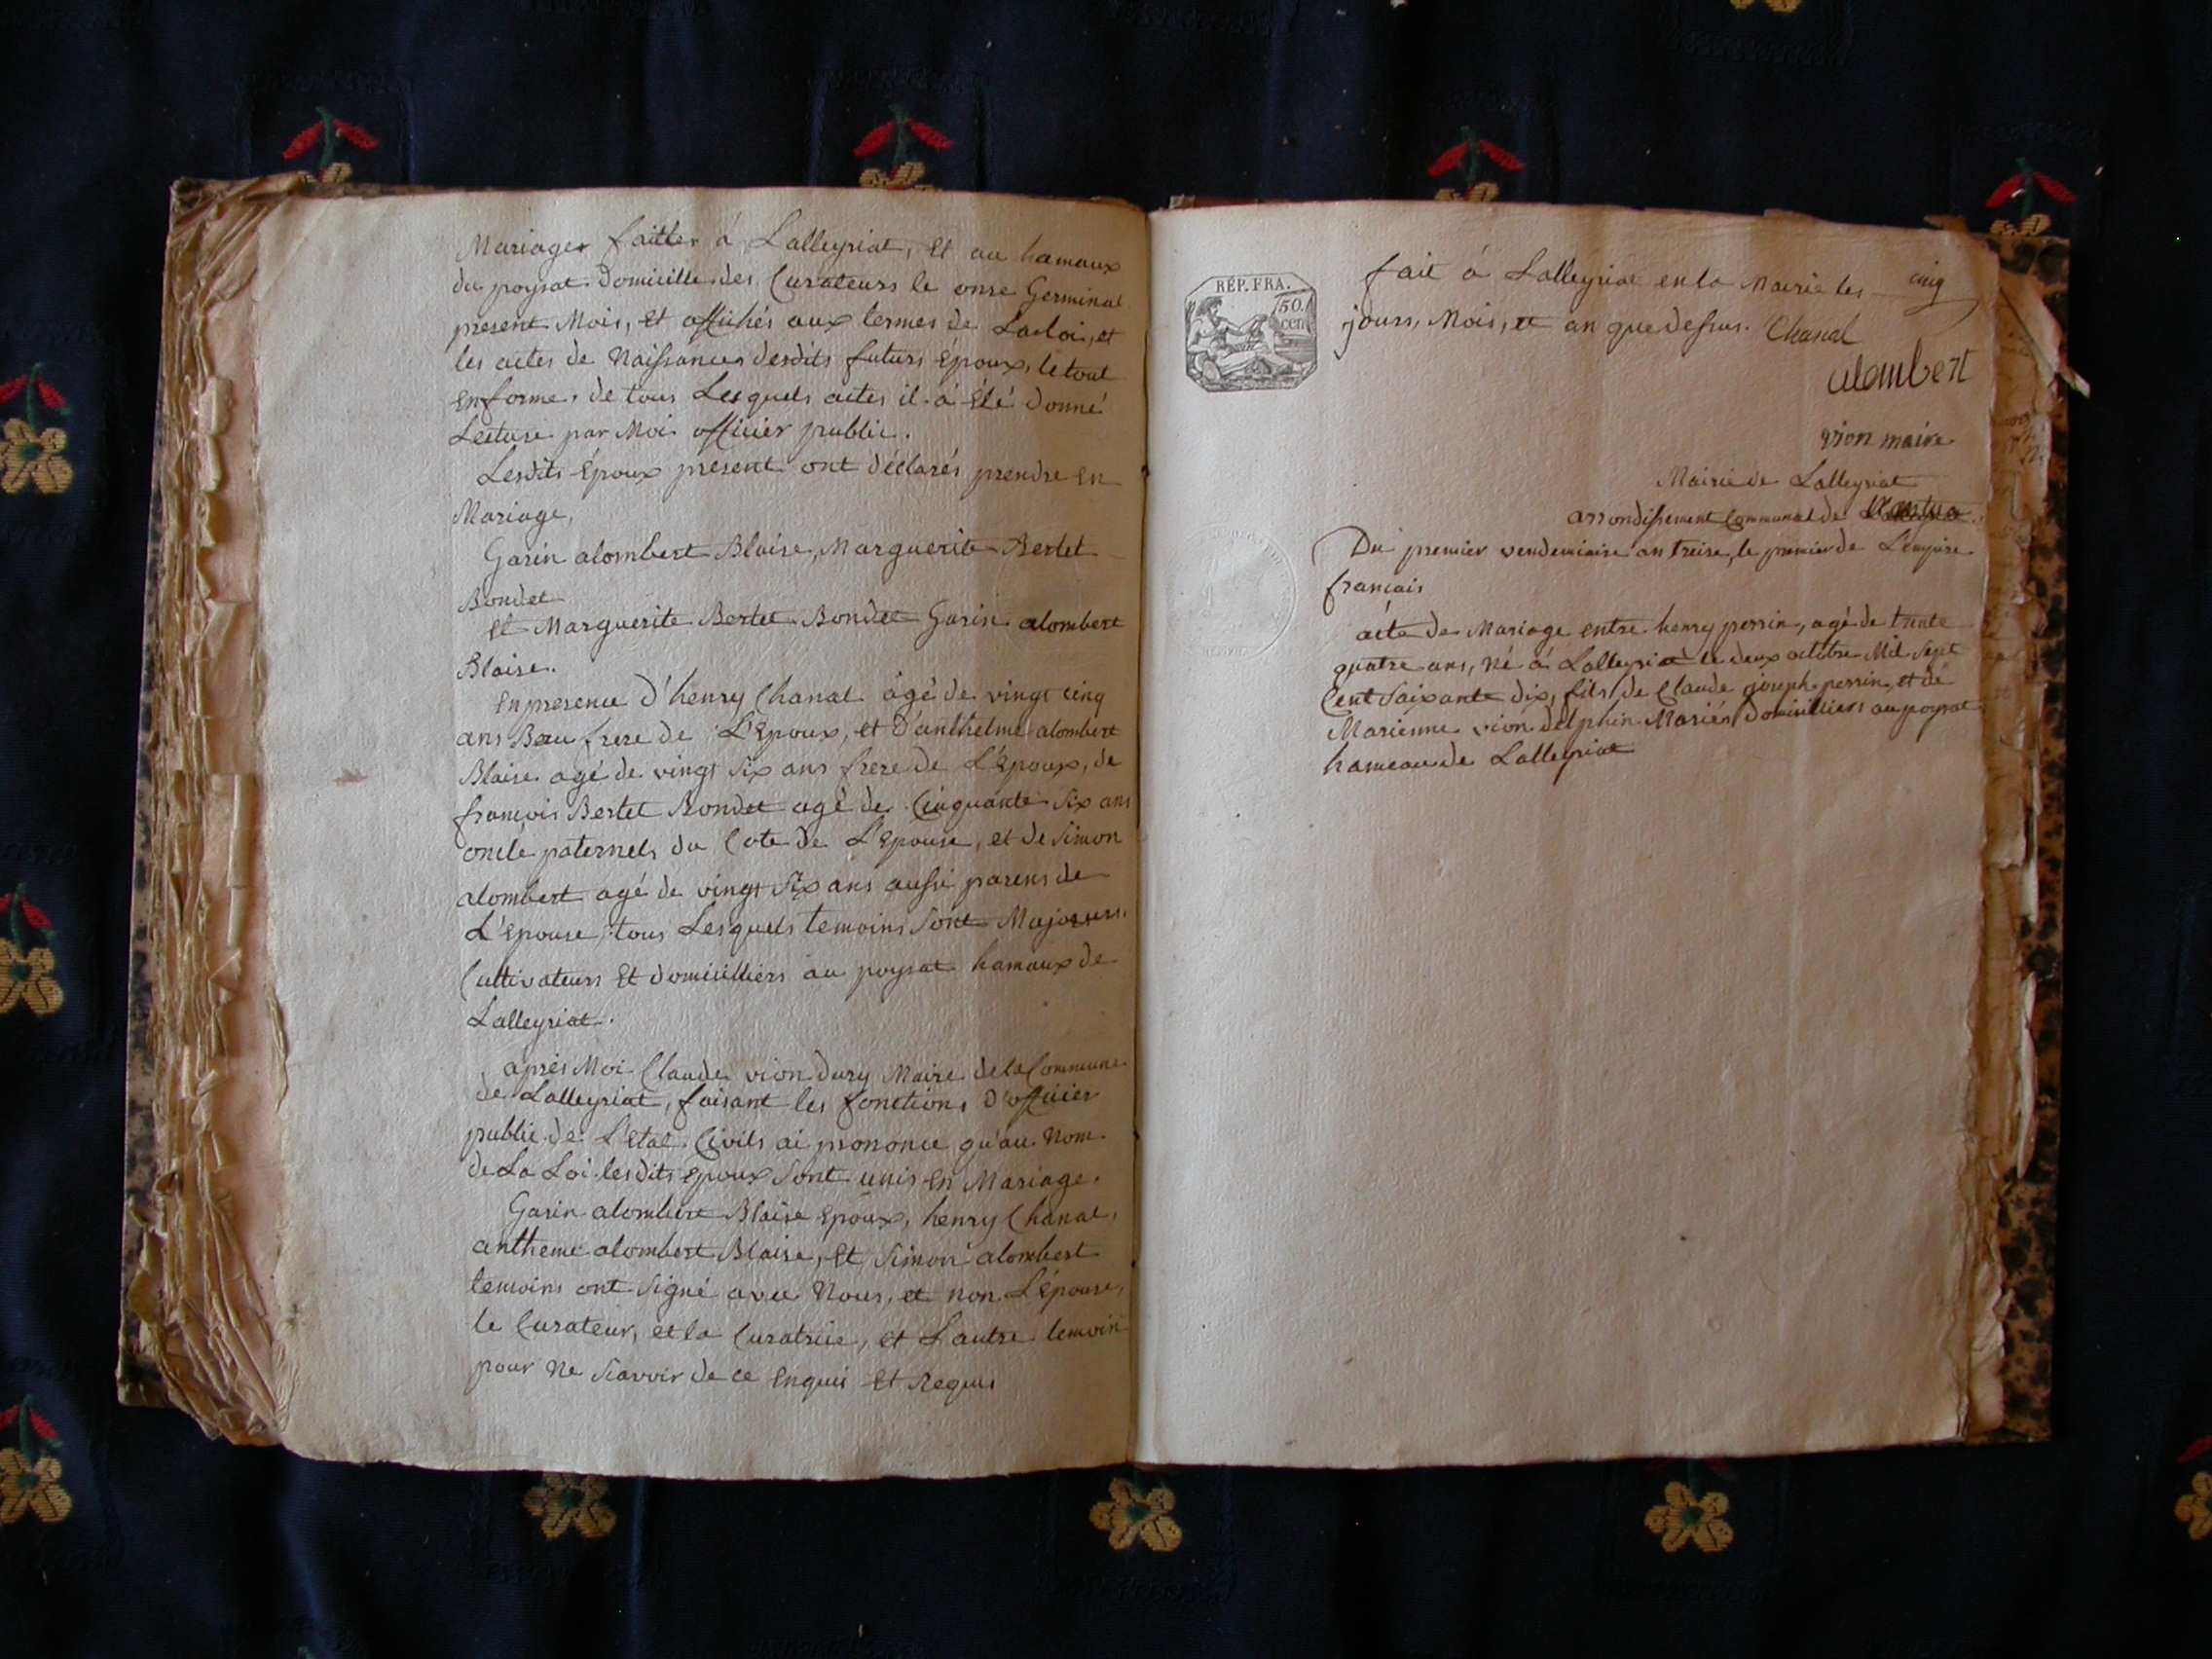 Mariages faittes á Lalleyriat, Et au hamaux
du poysat Domicille des Curateurs le onse Germinal
present Mois, Et affichés aux termes de La loi, et
les actes de Naissances desdits futurs Époux, le tout
En forme, de tous Lesquels actes il á Été donné
Lecture par Moi officier public.
Lesdits Époux present ont déclarés prendre En
Mariage,
Garin alombert Blaise, Marguerite Bertet
Bondet
Et Marguerite Bertet Bondet Garin alombert
Blaise.
En presence d'henry Chanal agé de vingt cinq
ans Beau frere de L'Epoux, et D'anthelme alombert
Blaise agé de vingt six ans frere de L'Epoux, de
françois Bertet Bondet agé de Cinquante six ans
oncle paternels du Cote de L'Epouse, et de Simon
alombert agé de vingt six ans aussi parens de
L'Epouse, tous Lesquels temoins sont Majoeurs,
Cultivateurs Et domicilliers au poysat hamaux de
Lalleyriat.
après Moi Claude vion dury Maire de la Commune
de Lalleyriat, faisant les fonctions D'officier
public de L'Etat Civils ai prononce qu'au Nom
de La Loi lesdits Epoux sont unis En Mariage.
Garin alombert Blaise Epoux, henry Chanal,
antheme alombert Blaise, Et Simon alombert
temoins ont signé avec Nous, et non L'Épouse,
le Curateur, et la Curatrice, et L'autre temoin
pour Ne scavoir de ce Enquis Et Requis
RÉP. FRA.
50
cen
fait á Lalleyriat en la Mairie les cinq
jours, Mois, et an que dessus. Chanal
alombert
vion maire
Mairie de Lalleyriat
arrondissement Communal de Nantua
Du premier vendemiaire an treise, le premier de L'empire
francais
acte de Mariage entre henry perrin, agé de trente
quatre ans, né á Lalleyriat le deux octobre Mil sept
Cent soixante dix, fils de Claude joseph perrin, et de
Marienne vion delphin Mariés domicilliers au poysat
hameau de Lalleyriat